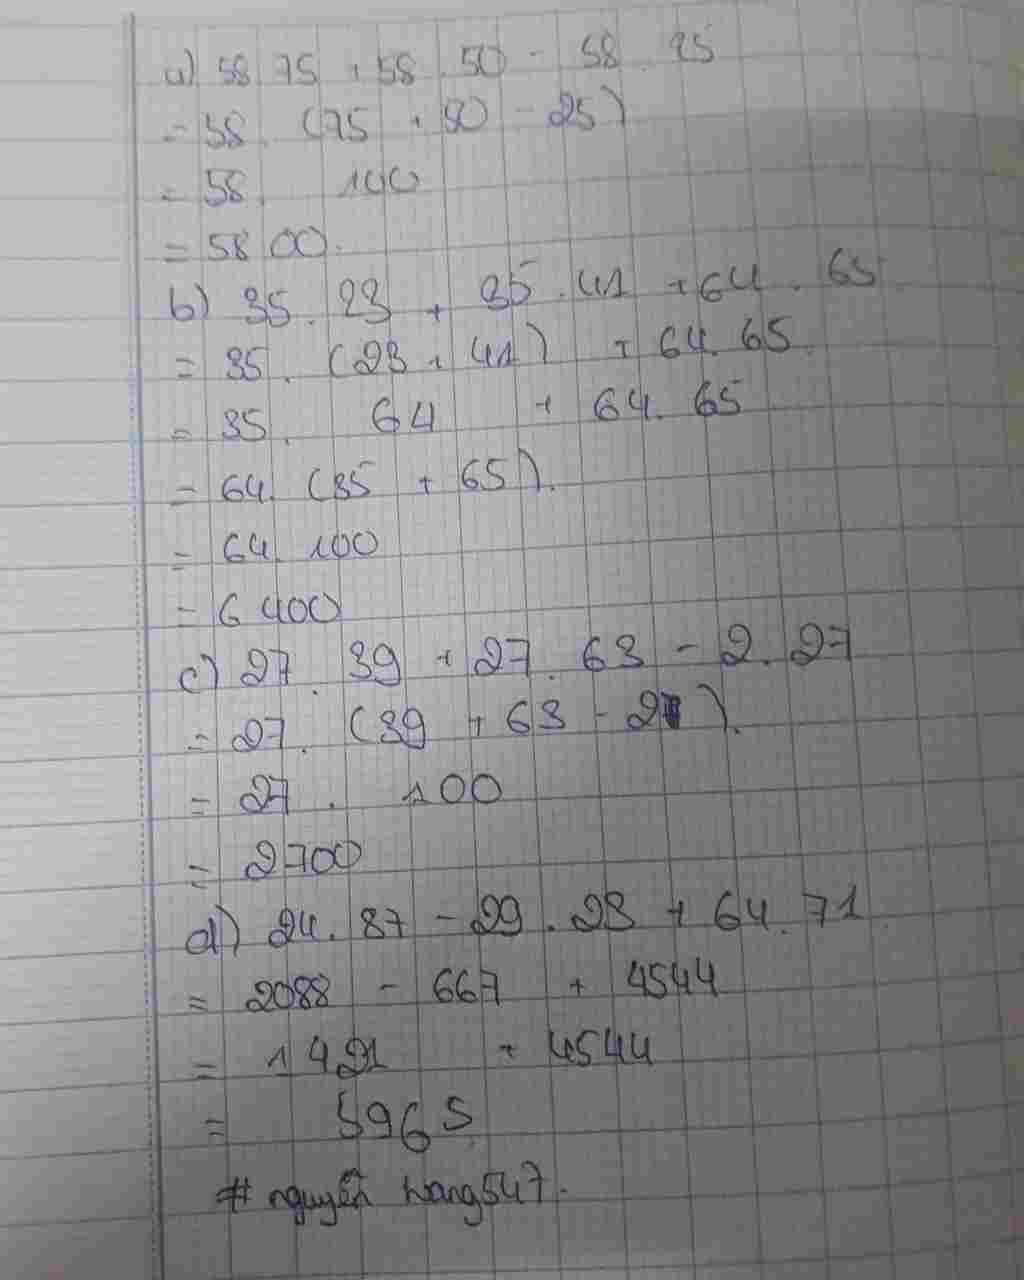 a) 58 75 + 58 . 50 - 58 . 25
= 58 . (75 + 50 - 25)
= 58 . 100
= 5800.
b) 35 . 23 + 35 . 41 + 64 . 65
= 35 . (23 + 41) + 64 . 65
= 35 . 64 + 64 . 65
= 64 . (35 + 65).
= 64 . 100
= 6400
c) 27 . 39 + 27 . 63 - 2 . 27
= 27 . (39 + 63 - 2).
= 27 . 100
= 2700
d) 24 . 87 - 29 . 23 + 64 . 71
= 2088 - 667 + 4544
= 1421 + 4544
= 5965
# nguyễn hang547.